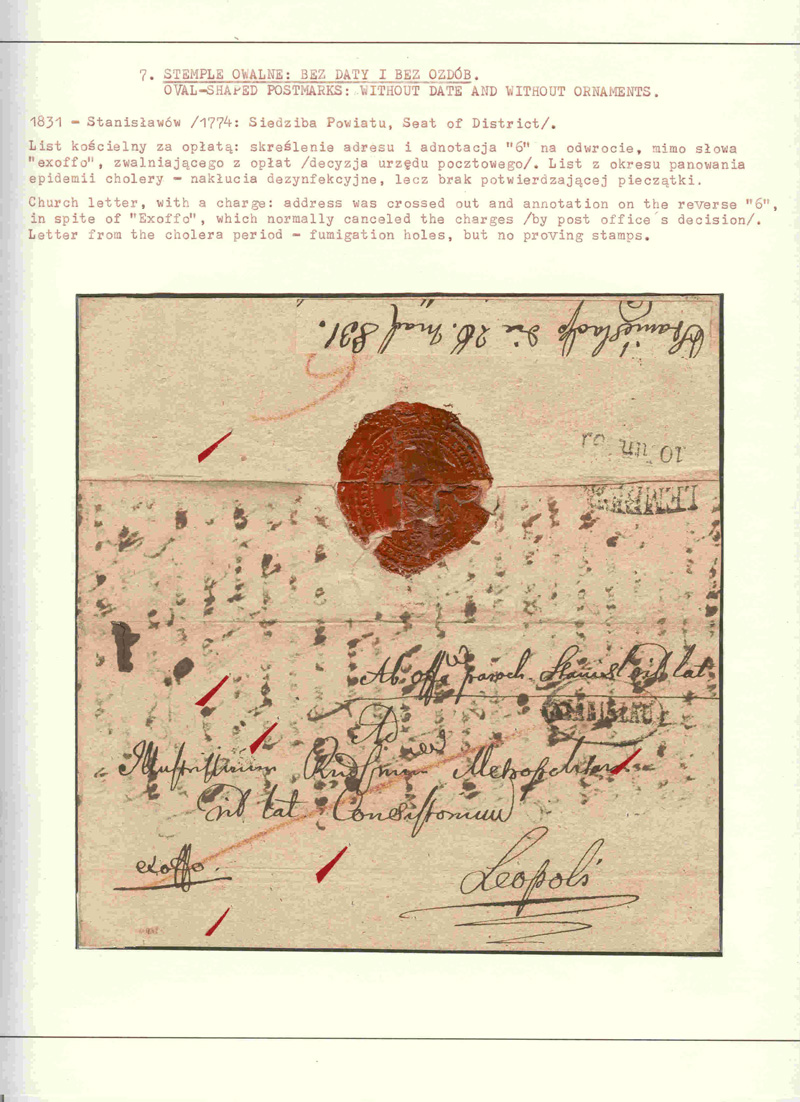 7. STEMPLE OWALNE: BEZ DATY I BEZ OZDÓB.
OVAL-SHAPED POSTMARKS: WITHOUT DATE AND WITHOUT ORNAMENTS.
1831 - Stanisławów /1774: Siedziba Powiatu, Seat of District/.
List kościelny za opłatą: skreślenie adresu i adnotacja "6" na odwrocie, mimo słowa
"exoffo", zwalniającego z opłat /decyzja urzędu pocztowego/. List z okresu panowania
epidemii cholery - nakłucia dezynfekcyjne, lecz brak potwierdzającej pieczątki.
Church letter, with a charge: address was crossed out and annotation on the reverse "6",
in spite of "Exoffo", which normally canceled the charges /by post office's decision/.
Letter from the cholera period - fumigation holes, but no proving stamps.
die 26. 831.
10
LEMBERG
Ab offo paroch. Stanisl rit lat
STANISLAU
Ad
Metropolitan
rit lat Consistorium
exoffo.
Leopoli